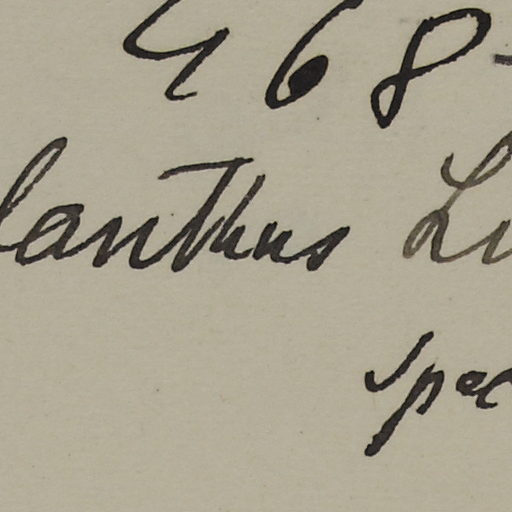 468-
lanthus Li
spec